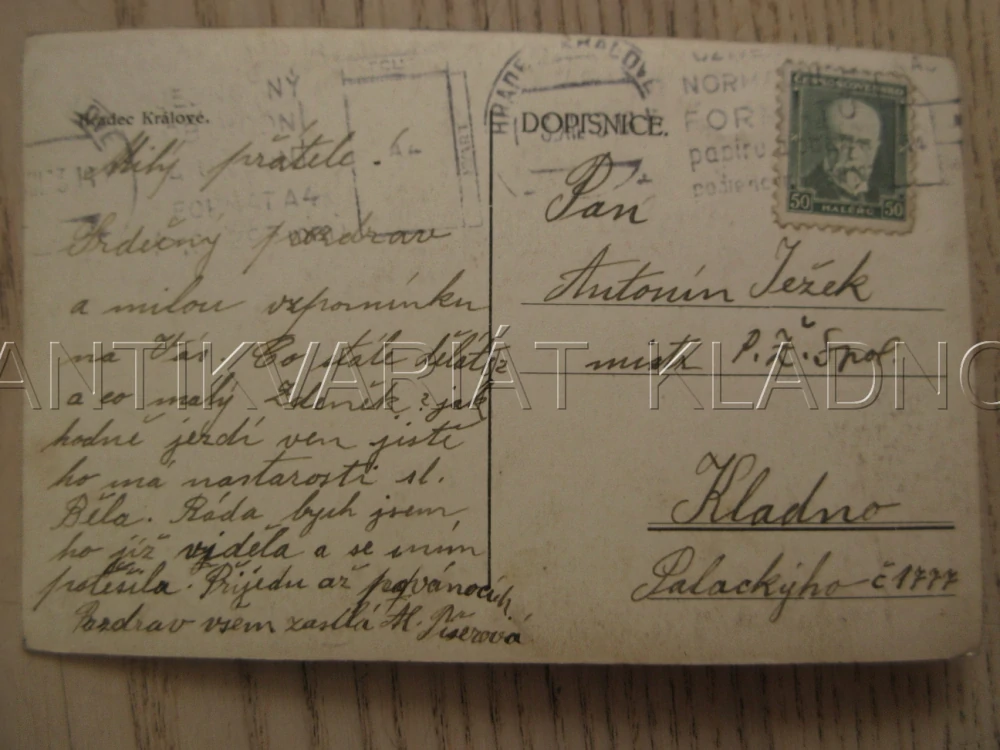 Hradec Králové.
DOPISNICE.
HRADEC KRÁLOVÉ
NORM
FOR
papíru
FORMÁT A4
A4
ČESKOSLOVENSKO
50 HALÉŘŮ 50
Milý přátelé.
Srdečný pozdrav
a milou vzpomínku
na Vás. Co stále děláte
a co malý Zdeněk? jak
hodně jezdí ven jistě
ho má nastarosti sl.
Běla. Ráda bych jsem
ho již viděla a se mým
potěšila. Přijedu až po vánocích.
Pozdrav všem zasílá M.
Pan
Antonín Ježek
mistr P. Ž. Spol.
Kladno
Palackýho č 1777
ANTIKVARIÁT KLADNO